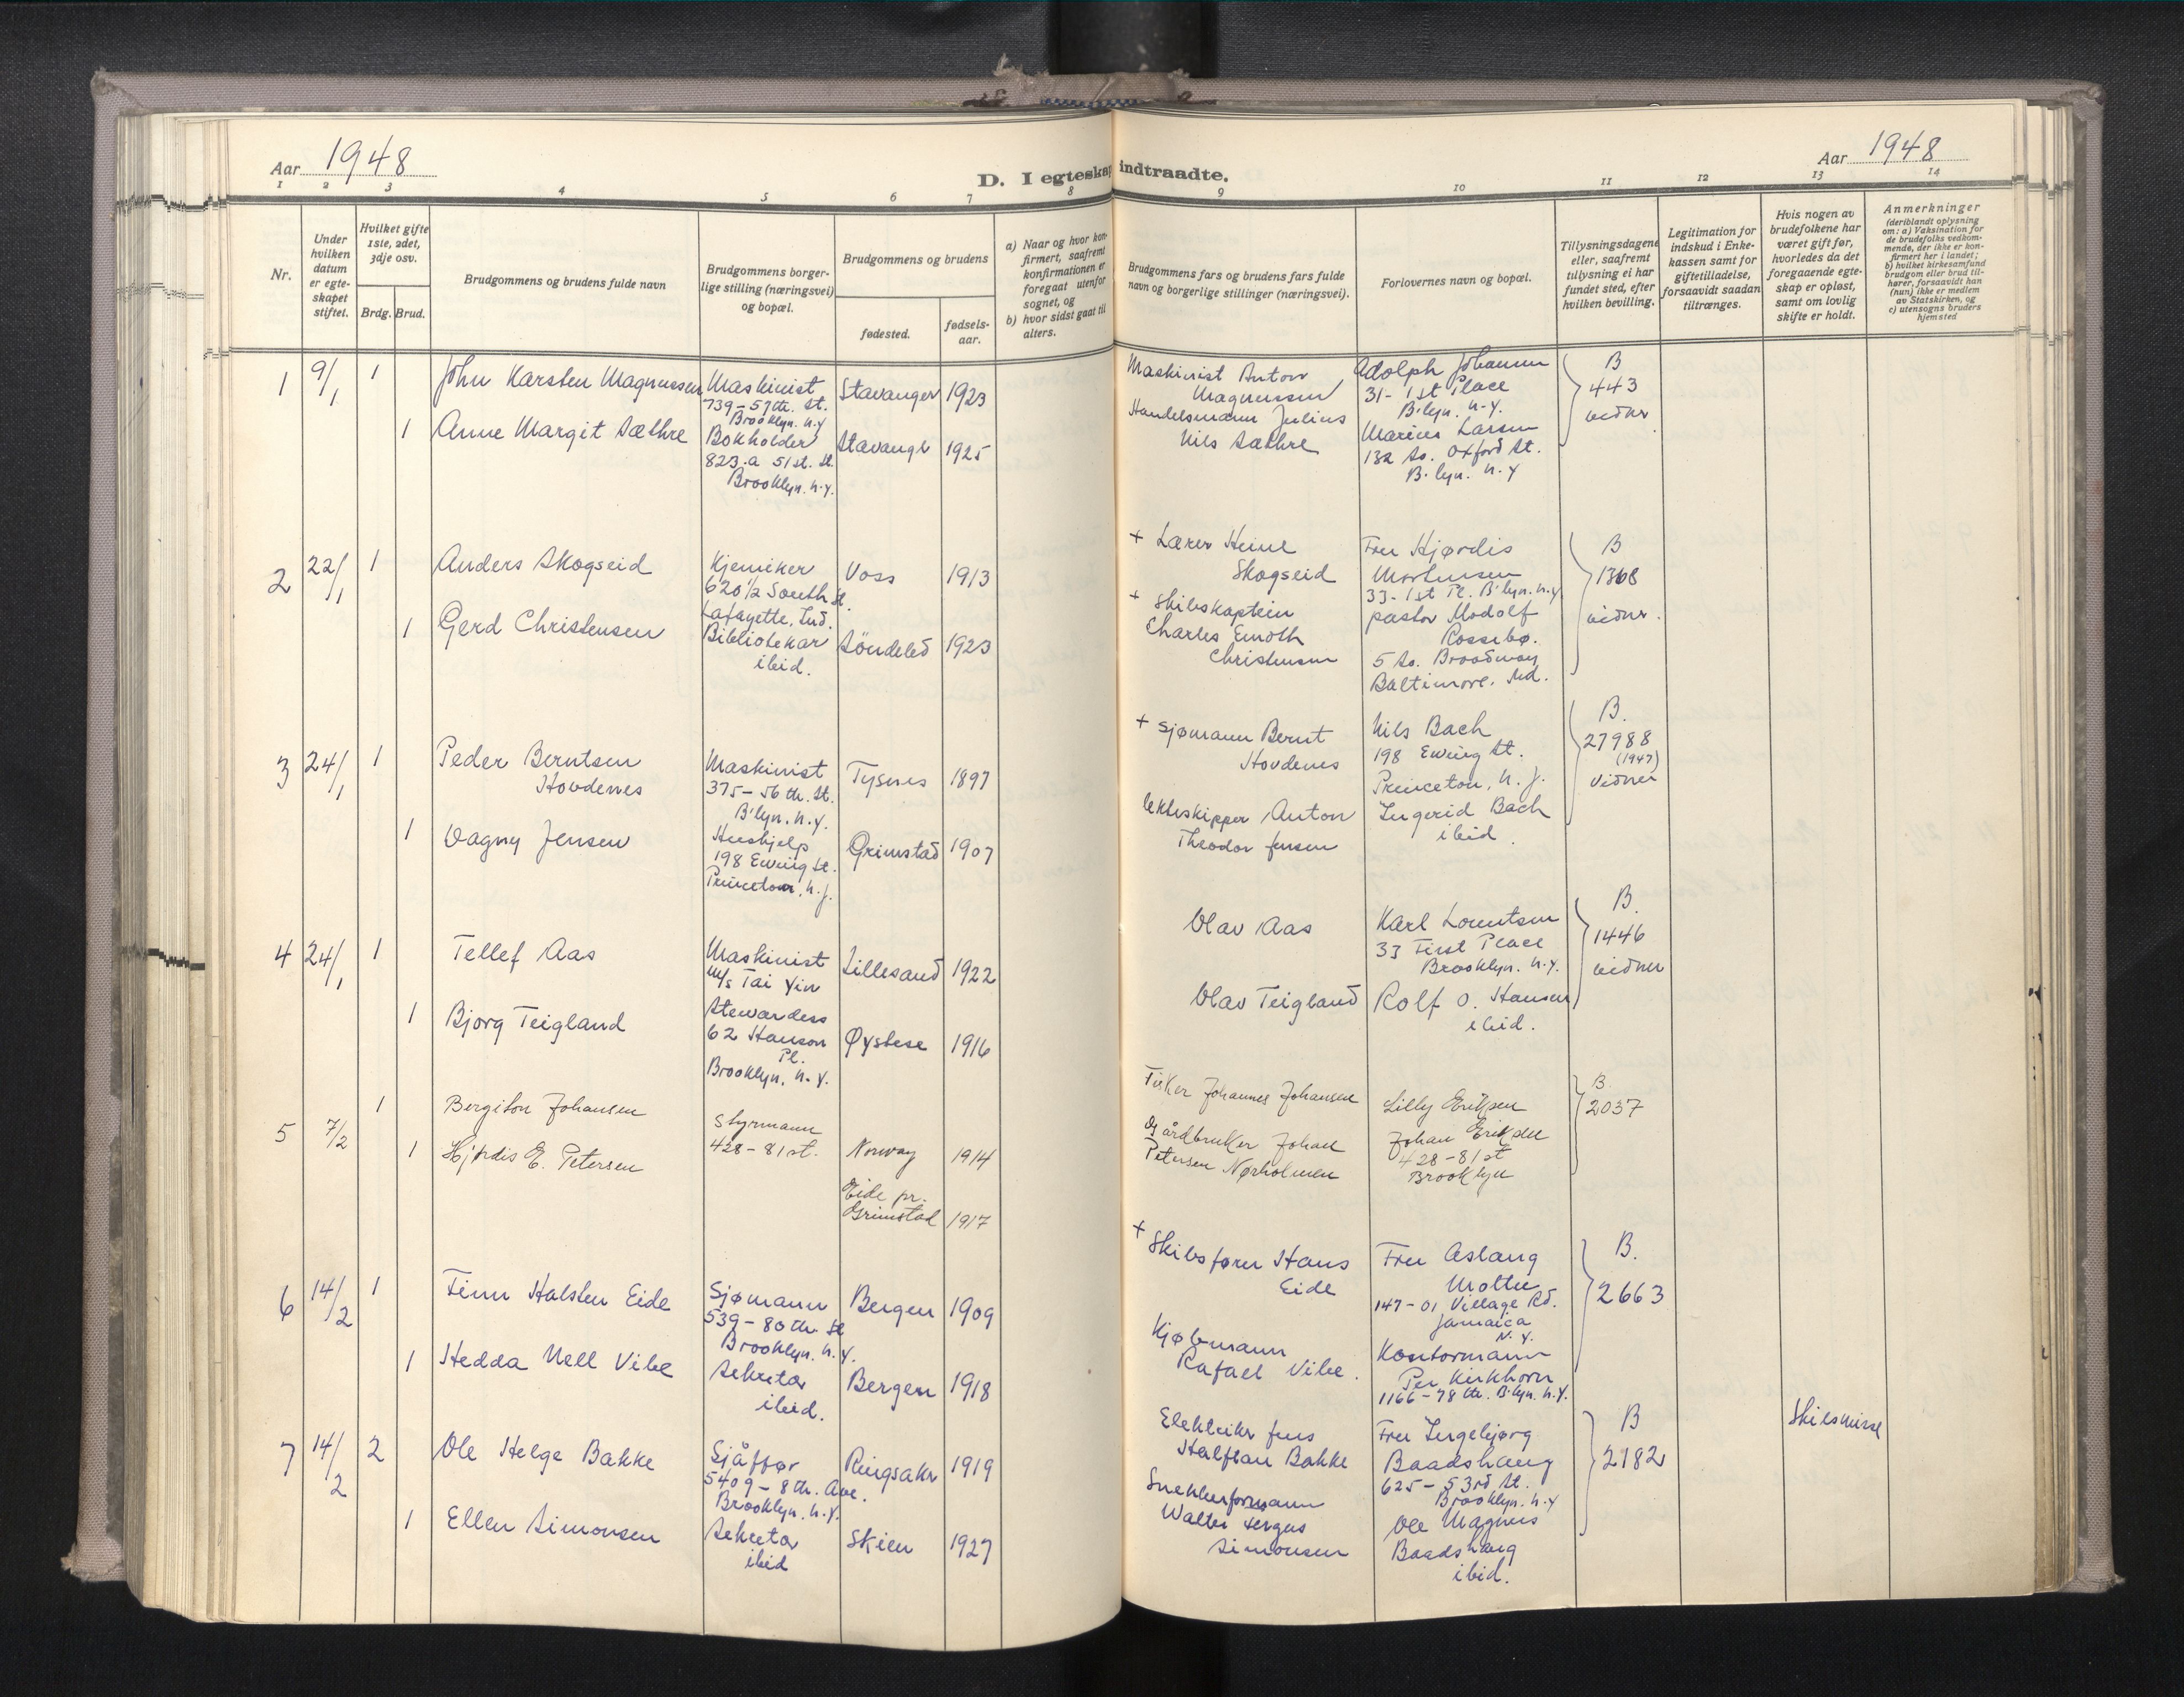 Aar 1948
D. I egteskap indtraadte.
Aar 1948
1 2 3 4 5 6 7 8 9 10 11 12 13 14
Nr.
Under hvilken datum er egteskapet stiftet.
Hvilket gifte 1ste, 2det, 3dje osv.
Brdg. Brud.
Brudgommens og brudens fulde navn
Brudgommens borgerlige stilling (næringsvei) og bopæl.
Brudgommens og brudens
fødested.
fødsels-aar.
a) Naar og hvor konfirmert, saafremt konfirmationen er foregaat utenfor sognet, og
b) hvor sidst gaat til alters.
Brudgommens fars og brudens fars fulde navn og borgerlige stillinger (næringsvei).
Forlovernes navn og bopæl.
Tillysningsdagene eller, saafremt tillysning ei har fundet sted, efter hvilken bevilling.
Legitimation for indskud i Enkekassen samt for giftetilladelse, forsaavidt saadan tiltrænges.
Hvis nogen av brudefolkene har været gift før, hvorledes da det foregaaende egteskap er opløst, samt om lovlig skifte er holdt.
Anmerkninger
(deriblandt oplysning om: a) Vaksination for de brudefolks vedkommende, der ikke er konfirmert her i landet; b) hvilket kirkesamfund brudgom eller brud tilhører, forsaavidt han (hun) ikke er medlem av Statskirken, og c) utensogns bruders hjemsted
1 9/1 1 John Karsten Magnussen
Maskinist
739 – 57th. St.
Brooklyn. N.Y
Stavanger 1923
Maskinist Anton
Magnussen
Adolph Johansen
31 – 1st Place
B.lyn. N.Y.
B
443
vidner
1 Anne Margit Sæthre
Bokholder
823.a 51st. St.
Brooklyn. N.Y.
Stavanger 1925
Handelsmann Julius
Nils Sæthre
Marius Larsen
132 So. Oxford St.
B.lyn. N.Y
2 22/1 1 Anders Skogseid
Kjemiker
620 1/2 South St.
Lafayette, Ind.
Voss 1913
+ Lærer Heine
Skogseid
Fru Hjørdis
Mortensen
33 – 1st Pl. B'lyn. N.Y
B
1368
vidner.
1 Gerd Christensen
Bibliotekar
ibid.
Søndeled 1923
+ Skibskaptein
Charles Emoth
Christensen
pastor Modolf
Rossebø.
5 So. Broadway
Baltimore. Md.
3 24/1 1 Peder Berntsen
Hovdenes
Maskinist
375 – 56th. St.
B'lyn. N.Y.
Tysnes 1897
+ Sjømann Bernt
Hovdenes
Nils Bach
198 Ewing St.
Princeton, N.J.
B.
27988
(1947)
vidner
1 Dagny Jensen
Hushjelp
198 Ewing St.
Princeton, N.J.
Grimstad 1907
lekteskipper Anton
Theodor Jensen
Ingerid Bach
ibid.
4 24/1 1 Tellef Aas
Maskinist
M/s Tai Yin
Lillesand 1922
Olav Aas
Karl Lorentsen
33 First Place
Brooklyn. N.Y.
B.
1446
vidner
1 Bjorg Teigland
Stewardess
62 Hanson
Pl.
Brooklyn, N.Y.
Øystese 1916
Olav Teigland
Rolf O. Hansen
ibid.
5 7/2 1 Bergiton Johansen
Styrmann
428 – 81 st.
Norway 1914
Fisker Johannes Johansen
Lilly Eriksen
B
2037
1 Hjørdis E. Petersen
Eide pr.
Grimstad 1917
Gårdbruker Johan
Petersen Nørholmen
Johan Eriksen
428 – 81 st
Brooklyn
6 14/2 1 Finn Halsten Eide
Sjømann
539 – 80th. St
Brooklyn. N.Y.
Bergen 1909
+ Skibsfører Hans
Eide
Fru Aslaug
147–01 Village Rd.
Jamaica
N.Y.
B.
2663
1 Hedda Nell Vibe
Sekretær
ibid.
Bergen 1918
Kjøbmann
Rafael Vibe.
Kontormann
Per Kirkhorn
1166 – 78th. B.lyn. N.Y.
7 14/2 2 Ole Helge Bakke
Sjåffør
5409 – 8th. Ave.
Brooklyn. N.Y.
Ringsaker 1919
Elektriker Jens
Halfdan Bakke
Fru Ingebjørg
Baadshaug
625 – 53rd St.
Brooklyn. N.Y
B
2182
Skilsmisse
1 Ellen Simonsen
Sekretær
ibid
Skien 1927
Snekkerformann
Walter
Simonsen
Ole Magnus
Baadshaug
ibid.